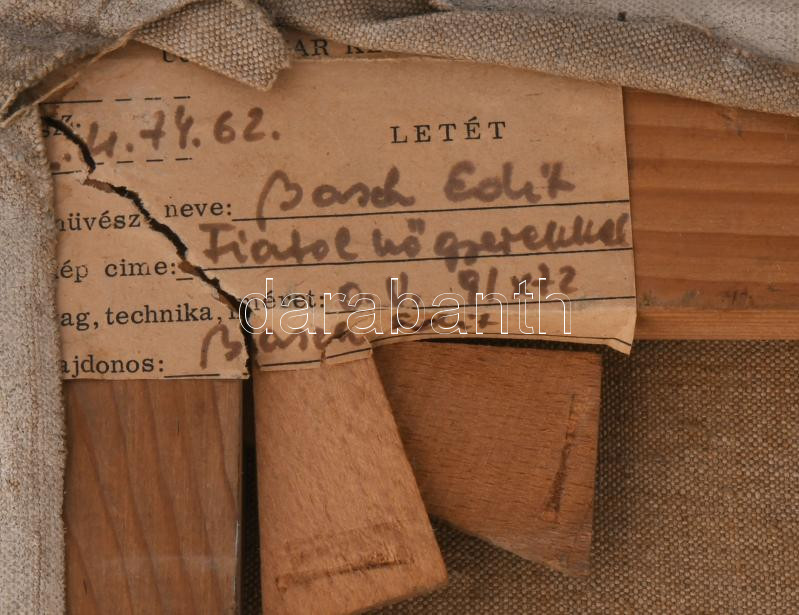 AR KE
sz.
4.74.62.
LETÉT
művész neve: Basch Edit
kép cime: Fiatal nő gyerekkel
ag, technika, méret: o. v. 91x72
ajdonos: Basch Edit
darabanth